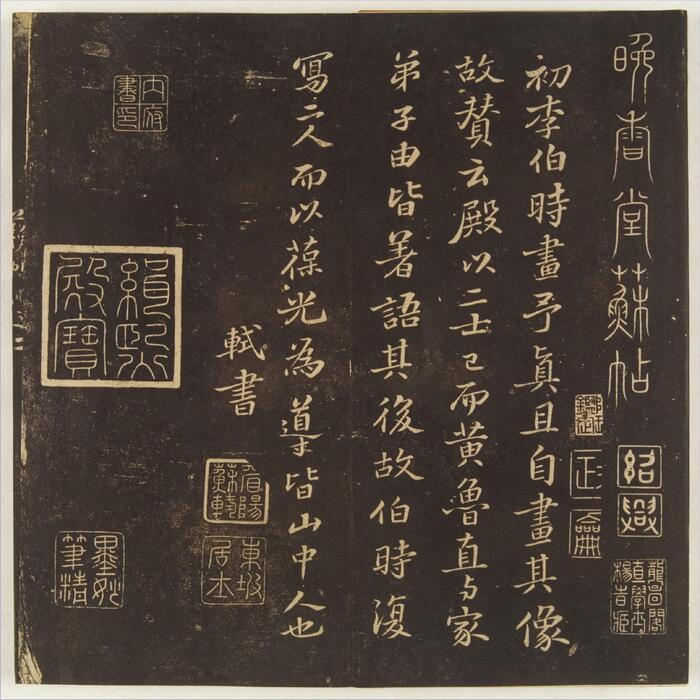 晚香堂蘇帖
紹興
初李伯時畫予真且自畫其像
故贊云殿以二士已而黄魯直与家
弟子由皆著語其後故伯時復
寫二人而以葆光為導皆山中人也
軾書
眉陽蘇軾
東坡居士
内府書印
緝熙殿寶
墨妙筆精